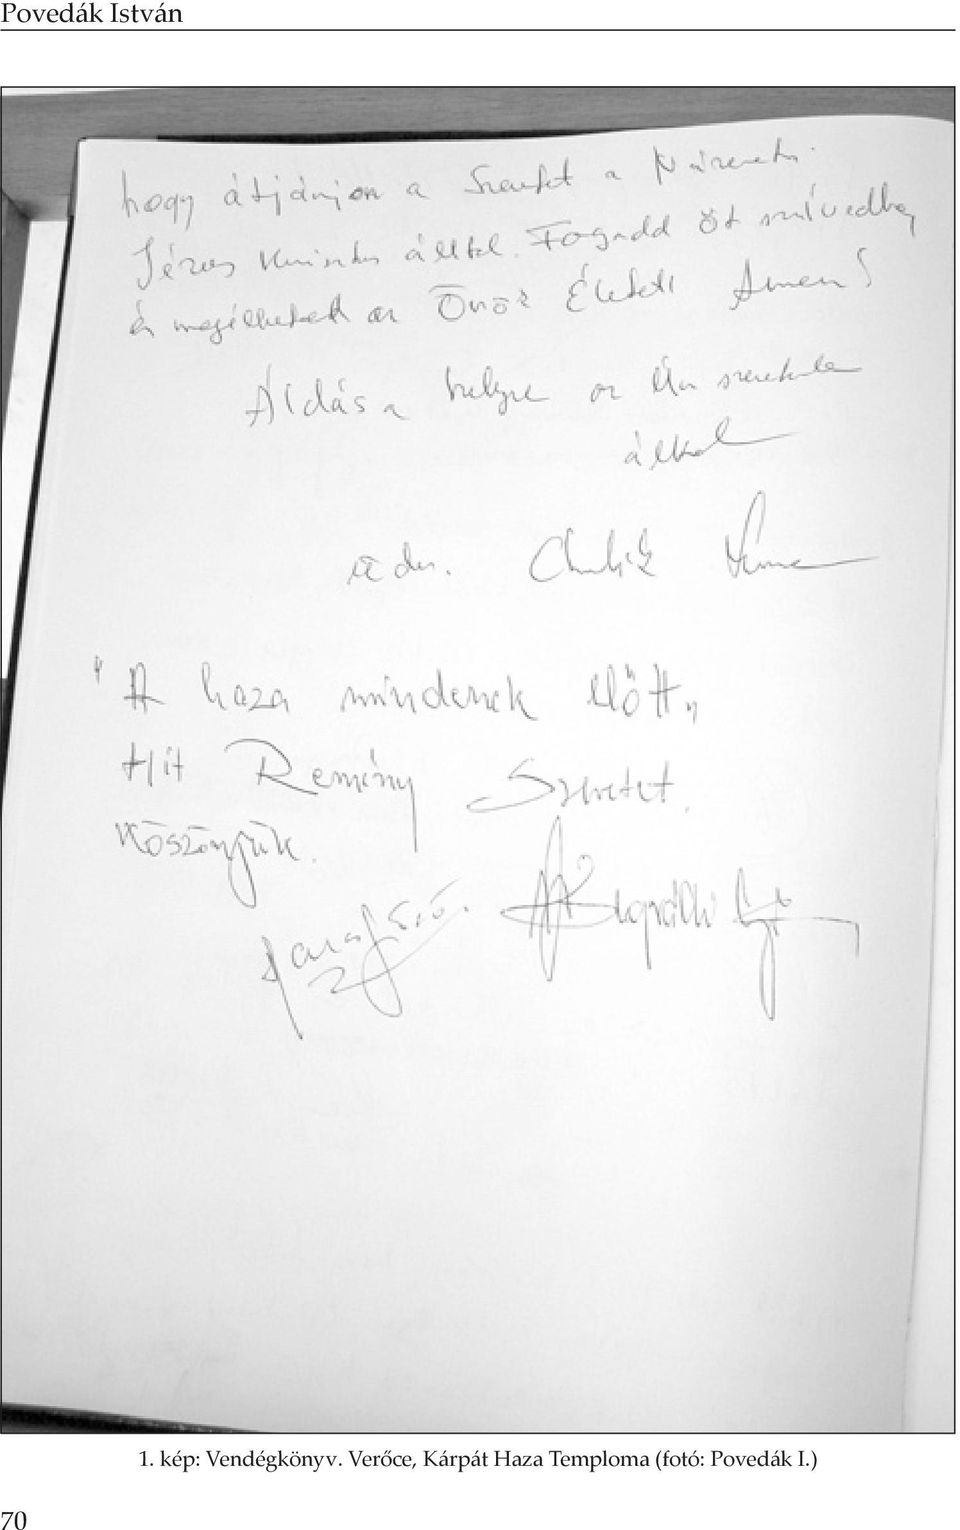 Povedák István
hogy átjárjon a Szeretet a Názáreti
Jézus Krisztus álltal. Fogadd Őt szívedbe,
és megélheted az Örök Életet! Ámen!
Áldás a helyre az Úr szeretete
által
"A haza mindenek előtt"
Hit Remény Szeretet.
Köszönjük.
1. kép: Vendégkönyv. Verőce, Kárpát Haza Temploma (fotó: Povedák I.)
70